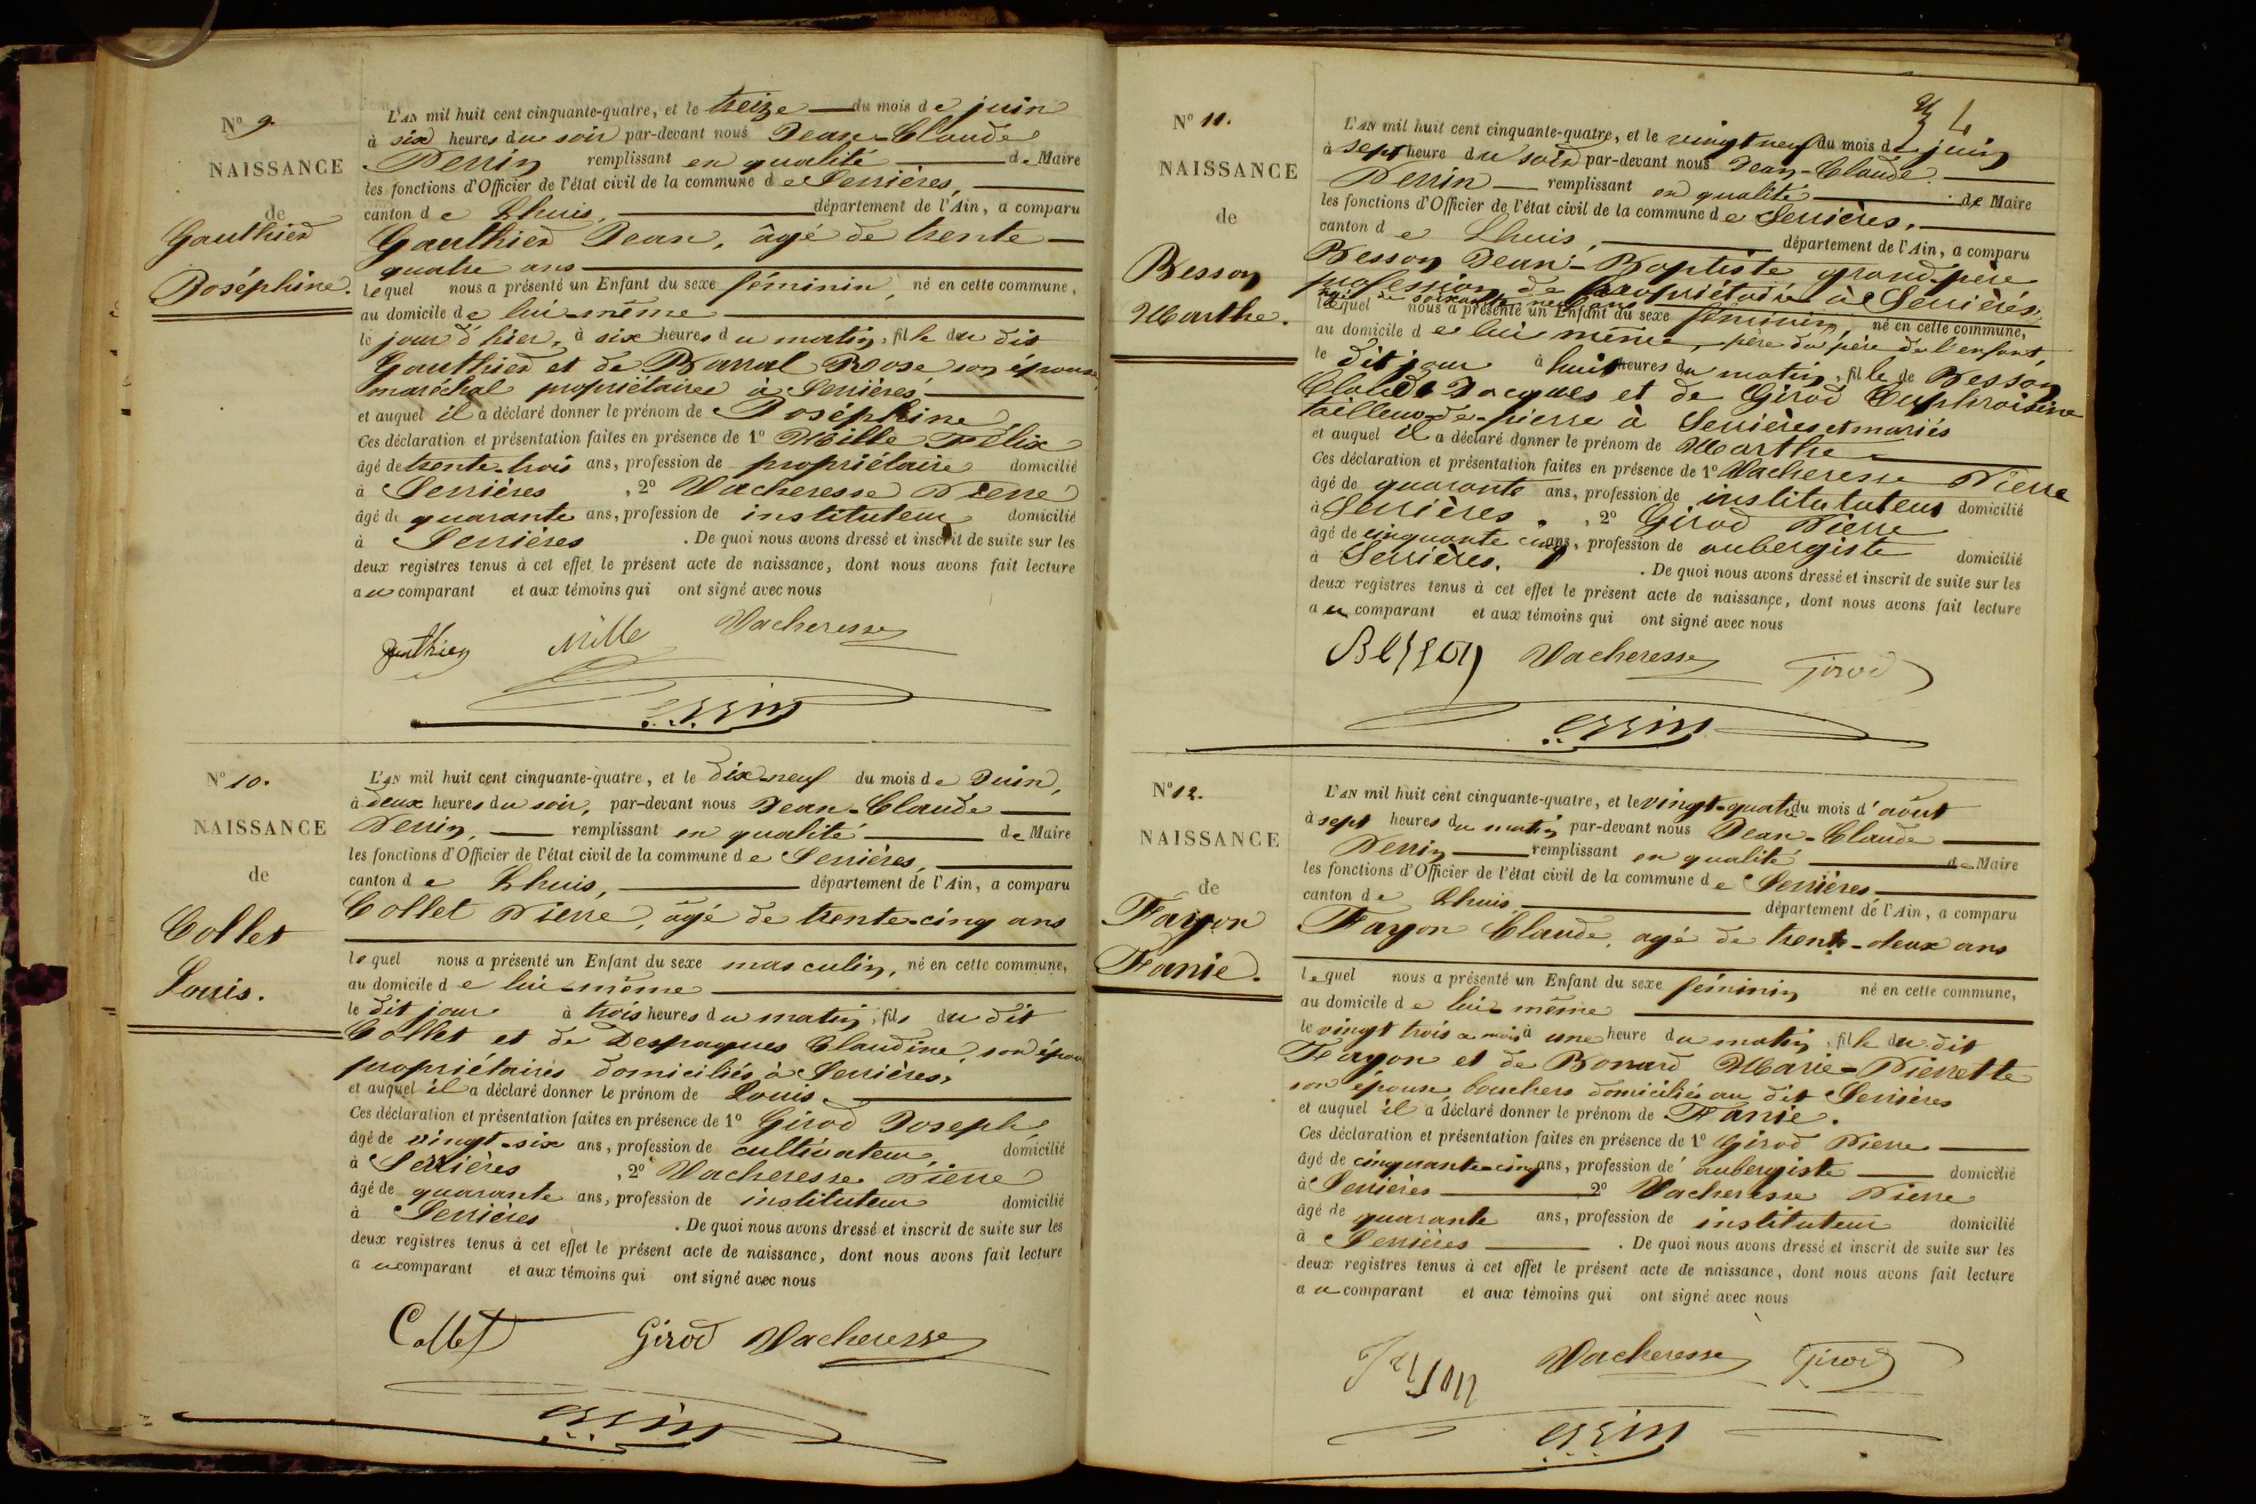 Nº 9.
NAISSANCE
de
Gauthier
Joséphine.
L'AN mil huit cent cinquante-quatre, et le treize du mois de juin
à six heures du soir par-devant nous Jean-Claude
Perrin remplissant en qualité de Maire
les fonctions d'Officier de l'état civil de la commune de Serrières,
canton de Lhuis, département de l'Ain, a comparu
Gauthier Jean, âgé de trente
quatre ans
lequel nous a présenté un Enfant du sexe féminin, né en cette commune,
au domicile de lui-même
le jour d'hier, à six heures du matin, fille du dit
Gauthier et de Barral Rose son épouse,
maréchal propriétaires à Serrières
et auquel il a déclaré donner le prénom de Joséphine
Ces déclaration et présentation faites en présence de 1º Mille Félix
âgé de trente-trois ans, profession de propriétaire domicilié
à Serrières, 2º Vacheresse Pierre
âgé de quarante ans, profession de instituteur domicilié
à Serrières. De quoi nous avons dressé et inscrit de suite sur les
deux registres tenus à cet effet le présent acte de naissance, dont nous avons fait lecture
au comparant et aux témoins qui ont signé avec nous
gauthier Mille Vacheresse
Perrin
Nº 10.
NAISSANCE
de
Collet
Louis.
L'AN mil huit cent cinquante-quatre, et le dix-neuf du mois de Juin,
à deux heures du soir, par-devant nous Jean-Claude
Perrin, remplissant en qualité de Maire
les fonctions d'Officier de l'état civil de la commune de Serrières,
canton de Lhuis, département de l'Ain, a comparu
Collet Pierre, âgé de trente-cinq ans
lequel nous a présenté un Enfant du sexe masculin, né en cette commune,
au domicile de lui-même
le dit jour à trois heures du matin, fils du dit
Collet et de Despaques Claudine, son épouse
propriétaires domiciliés à Serrières,
et auquel il a déclaré donner le prénom de Louis
Ces déclaration et présentation faites en présence de 1º Girod Joseph,
âgé de vingt-six ans, profession de cultivateur, domicilié
à Serrières, 2º Vacheresse Pierre
âgé de quarante ans, profession de instituteur domicilié
à Serrières. De quoi nous avons dressé et inscrit de suite sur les
deux registres tenus à cet effet le présent acte de naissance, dont nous avons fait lecture
au comparant et aux témoins qui ont signé avec nous
Collet Girod Vacheresse
Perrin
4
Nº 11.
NAISSANCE
de
Besson
Marthe.
L'AN mil huit cent cinquante-quatre, et le vingt neuf du mois de juin
à sept heure du soir par-devant nous Jean-Claude
Perrin remplissant en qualité de Maire
les fonctions d'Officier de l'état civil de la commune de Serrières,
canton de Lhuis, département de l'Ain, a comparu
Besson Jean-Baptiste grand-père
profession de propriétaire à Serrières
âgé de soixante neuf ans
lequel nous a présenté un Enfant du sexe féminin, né en cette commune,
au domicile de lui même, père du père de l'enfant,
le dit jour à huit heures du matin, fille de Besson
Claude Jacques et de Girod Euphroisine
tailleur-de-pierre à Serrières et mariés
et auquel il a déclaré donner le prénom de Marthe
Ces déclaration et présentation faites en présence de 1º Vacheresse Pierre
âgé de quarante ans, profession de institututeur domicilié
à Serrières, 2º Girod Pierre
âgé de cinquante cinq ans, profession de aubergiste domicilié
à Serrières. De quoi nous avons dressé et inscrit de suite sur les
deux registres tenus à cet effet le présent acte de naissance, dont nous avons fait lecture
au comparant et aux témoins qui ont signé avec nous
Besson Vacheresse Girod
Perrin
Nº 12.
NAISSANCE
de
Fayon
Fanie.
L'AN mil huit cent cinquante-quatre, et le vingt-quatre du mois d'août
à sept heures du matin par-devant nous Jean-Claude
Perrin remplissant en qualité de Maire
les fonctions d'Officier de l'état civil de la commune de Serrières
canton de Lhuis département de l'Ain, a comparu
Fayon Claude, agé de trente-deux ans
lequel nous a présenté un Enfant du sexe féminin né en cette commune,
au domicile de lui-même
le vingt trois à une heure du matin, fille du dit
Fayon et de Bonard Marie-Pierrette
son épouse, bouchers domiciliés au dit Serrières
et auquel il a déclaré donner le prénom de Fanie.
Ces déclaration et présentation faites en présence de 1º Girod Pierre
âgé de cinquante-cinq ans, profession de aubergiste domicilié
à Serrières 2º Vacheresse Pierre
âgé de quarante ans, profession de instituteur domicilié
à Serrières. De quoi nous avons dressé et inscrit de suite sur les
deux registres tenus à cet effet le présent acte de naissance, dont nous avons fait lecture
au comparant et aux témoins qui ont signé avec nous
Fayon Vacheresse Girod
Perrin